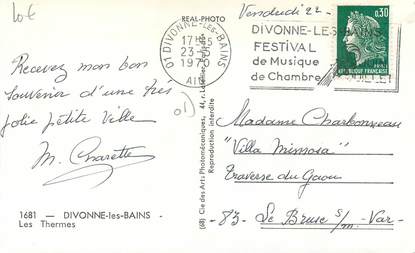 10€
REAL-PHOTO
Vendredi 22 -
01 DIVONNE-LES-BAINS
17H
23-5
1970
AIN
DIVONNE-LES-BAINS
FESTIVAL
de Musique
de Chambre
0,30
REPUBLIQUE FRANÇAISE
Recevez mon bon
souvenir d'une très
jolie petite ville
M. Charette
01)
(68) Cie des Arts Photomécaniques, 44, r. Letellier
Reproduction interdite
Madame Charbonneau
"Villa Mimosa"
Traverse du Gaou
- 83 - Le Brusc s/m - Var -
1681 - DIVONNE-les-BAINS -
Les Thermes